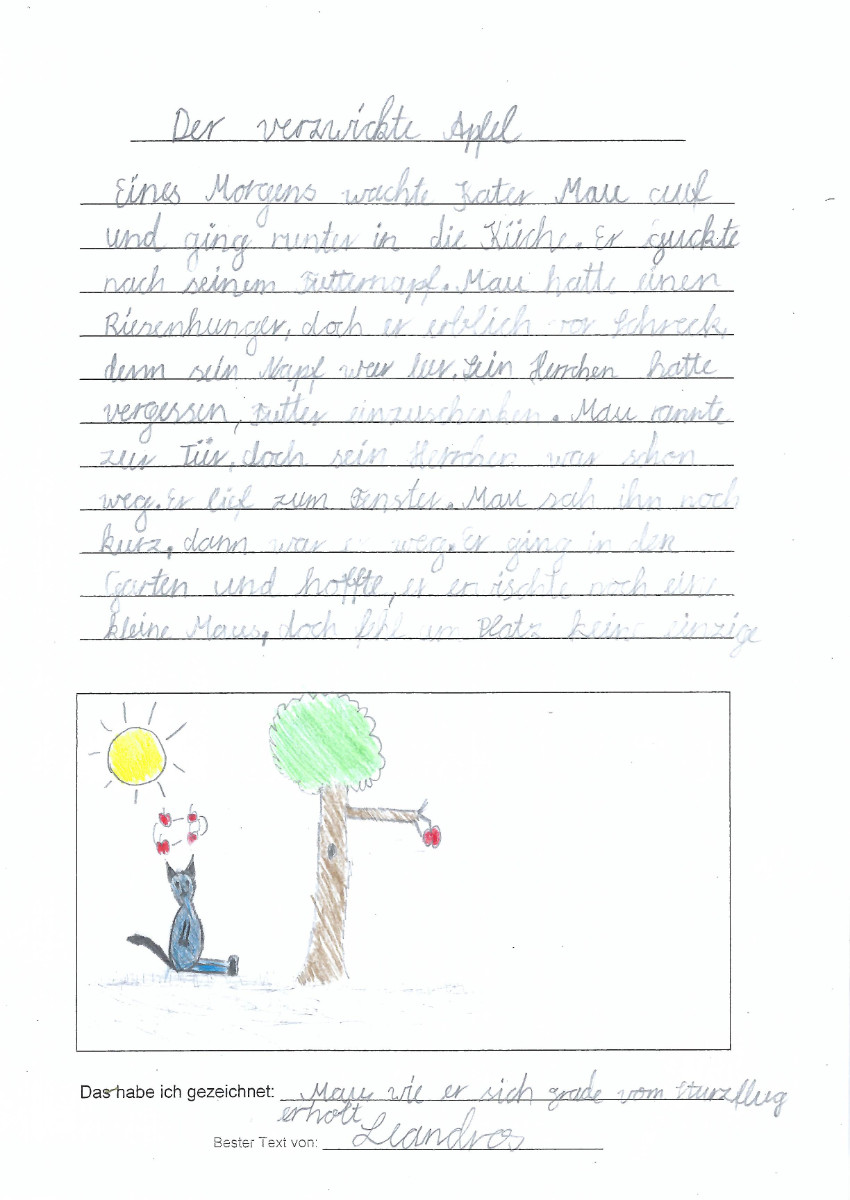 Der verzwickte Apfel
Eines Morgens wachte Kater Mau auf
und ging runter in die Küche. Er guckte
nach seinem Futternapf. Mau hatte einen
Riesenhunger, doch er erblich vor Schreck,
denn sein Napf war ler. Sein Herrchen hatte
vergessen, Futter einzuschenken. Mau rannte
zur Tür, doch sein Herrchen war schon
weg. Er lief zum Fenster. Mau sah ihn noch
kurz, dann war er weg. Er ging in den
Garten und hoffte, er erwischte noch eine
kleine Maus, doch am Platz keine einzige
Das habe ich gezeichnet: Mau wie er sich grade vom Sturzflug
erholt
Bester Text von: Leandros